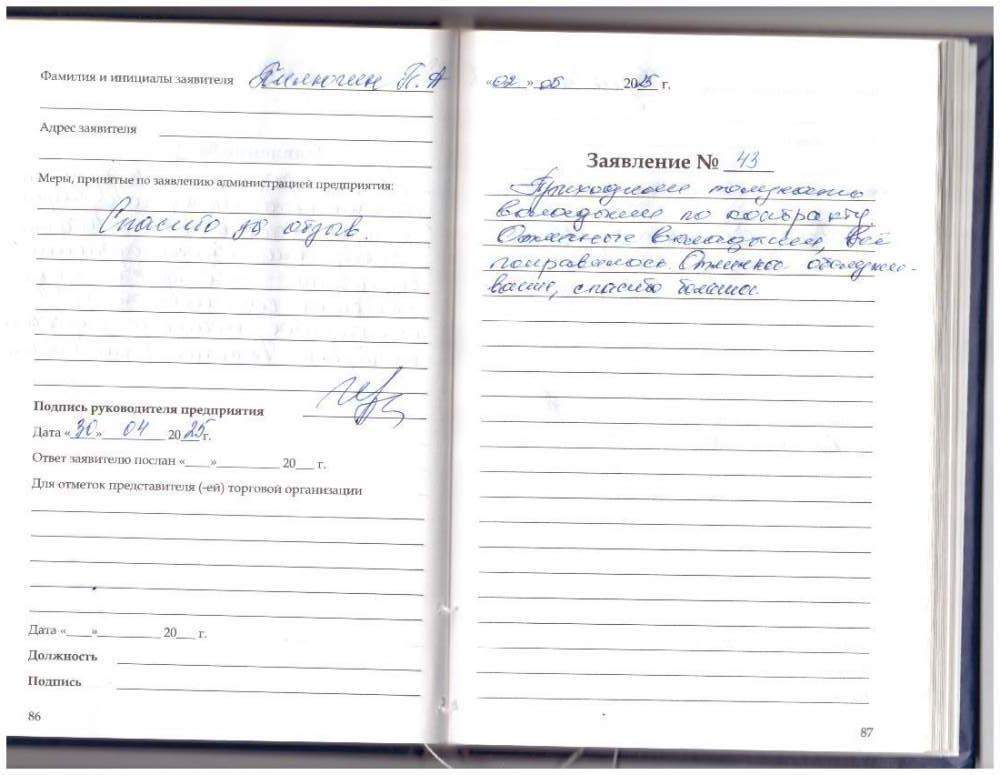 Фамилия и инициалы заявителя Пилюгин П.А
Адрес заявителя
Меры, принятые по заявлению администрацией предприятия:
Спасибо за отзыв.
Подпись руководителя предприятия
Дата «30» 04 2025г.
Ответ заявителю послан «___»__________ 20___ г.
Для отметок представителя (-ей) торговой организации
Дата «___»__________ 20___ г.
Должность
Подпись
86
«02» 05 2025 г.
Заявление № 43
Приходили получать
по контракту.
Отличные всё
понравилось. Отличное обслужи-
вание, спасибо большое.
87